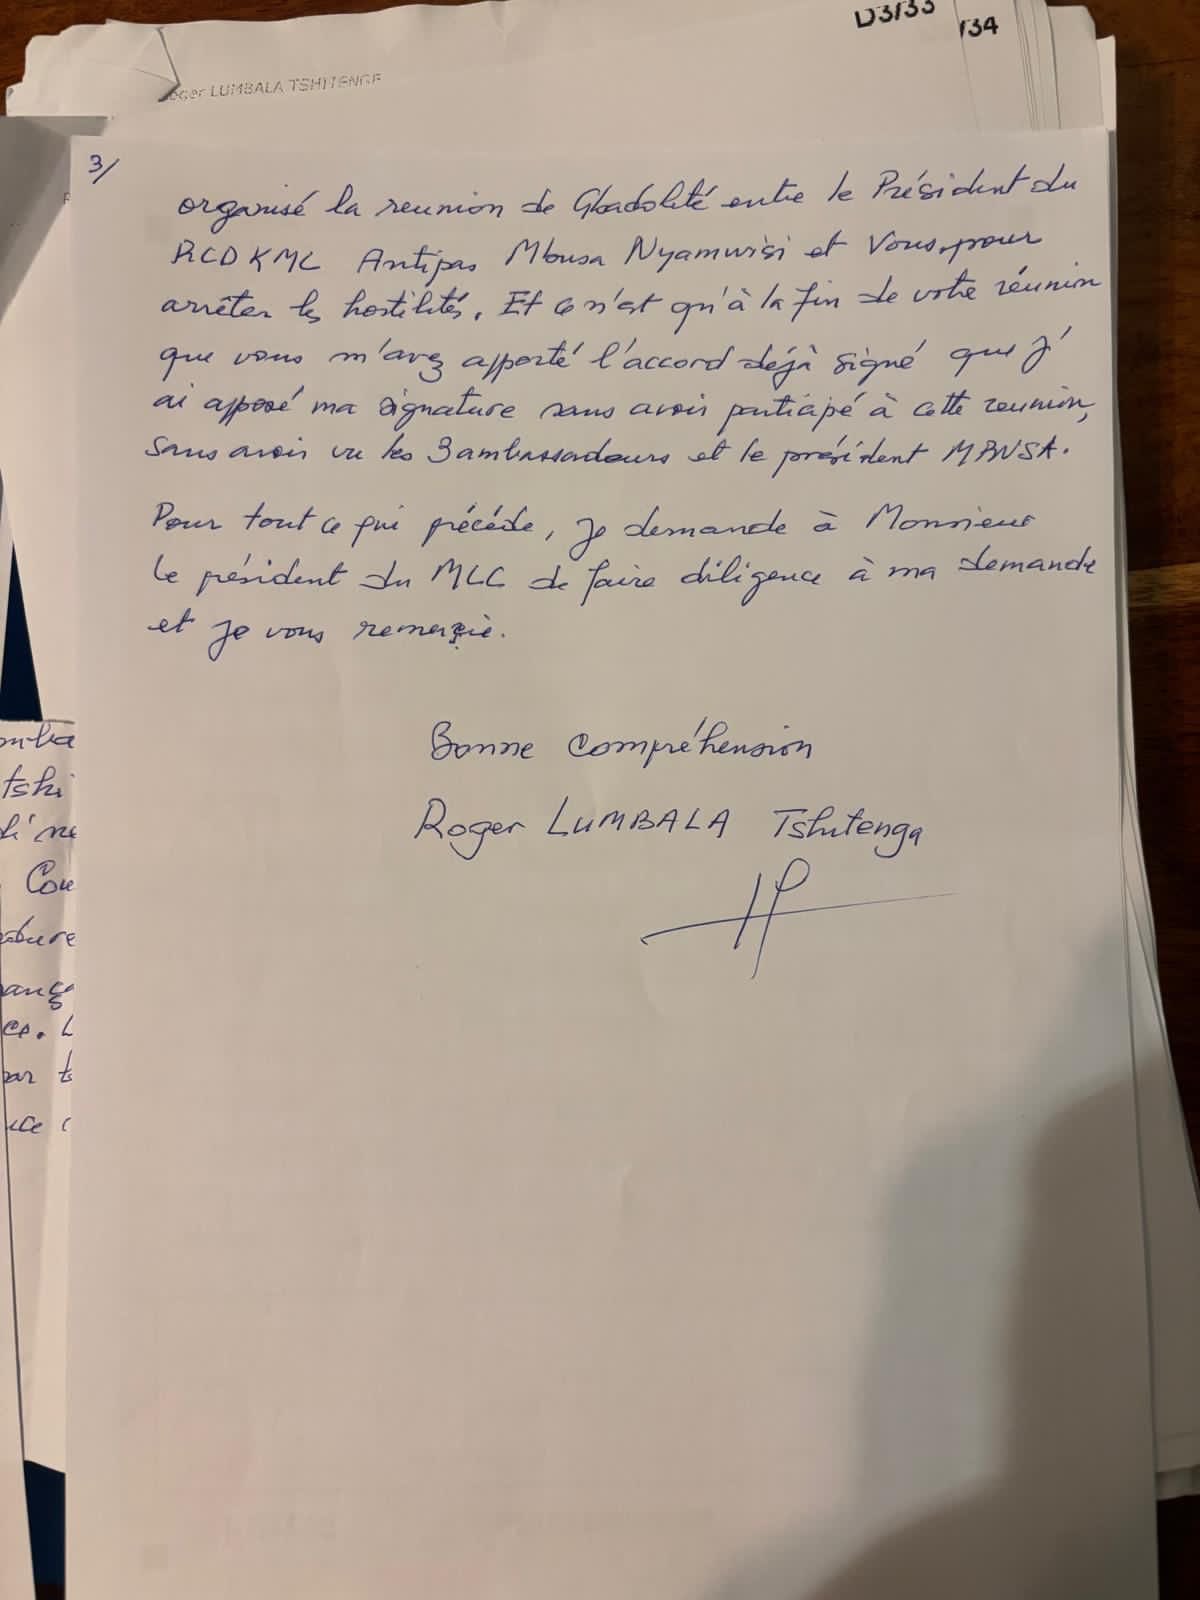 D3/33
/34
oger LUMBALA TSHITENGE
3/
organisé la reunion de Gbadolité entre le Président du
RCD KML Antipas Mbusa Nyamwisi et Vous, pour
arrêter les hostilités. Et ce n'est qu'à la fin de votre réunion
que vous m'avez apporté l'accord déjà signé que j'
ai apposé ma signature sans avoir participé à cette reunion,
sans avoir vu les 3 ambassadeurs et le président MBUSA.
Pour tout ce qui précéde, je demande à Monsieur
le président du MLC de faire diligence à ma demande
et je vous remerçie.
Bonne compréhension
Roger LUMBALA Tshitenga
tshi
Cou
ce. L